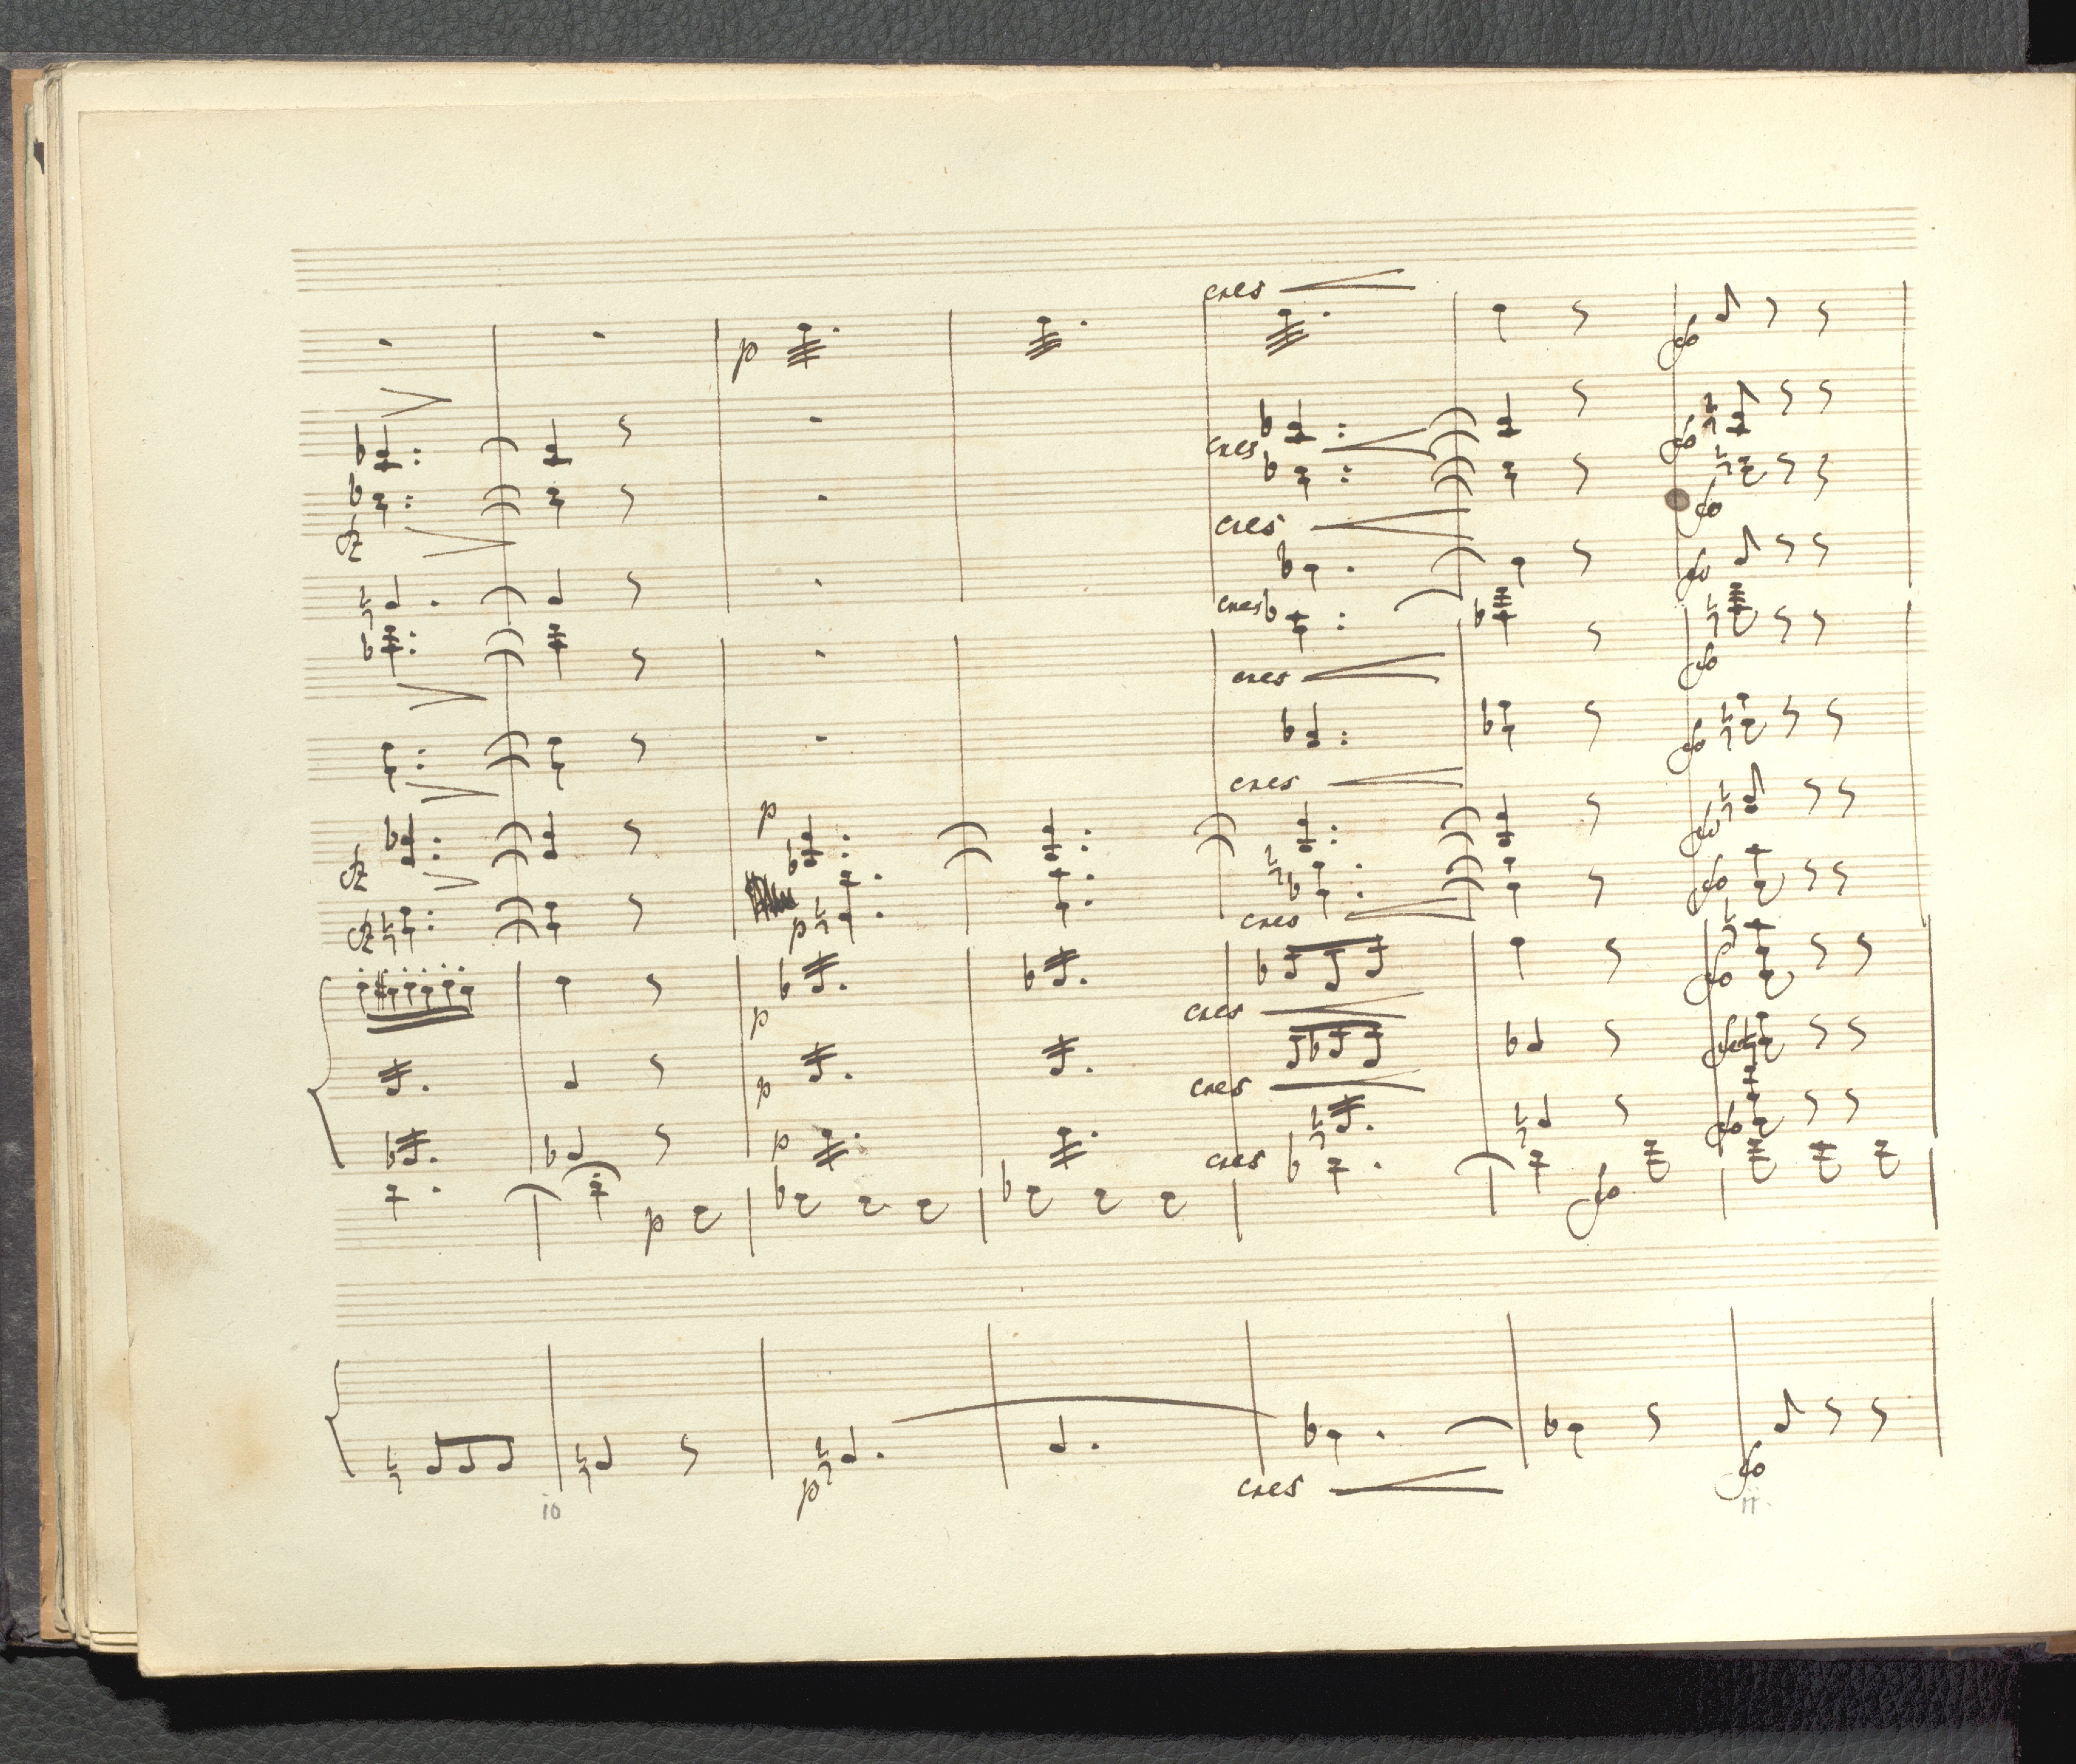 cres
p
fo
cres
fo
cres
fo
fz
fo
cres
fo
cres
fo
cres
p
fo
fz
fo
cres
fz
p
fo
cres
p
fo
cres
p
p
cres
fo
p
fo
cres
p
fo
10
11.